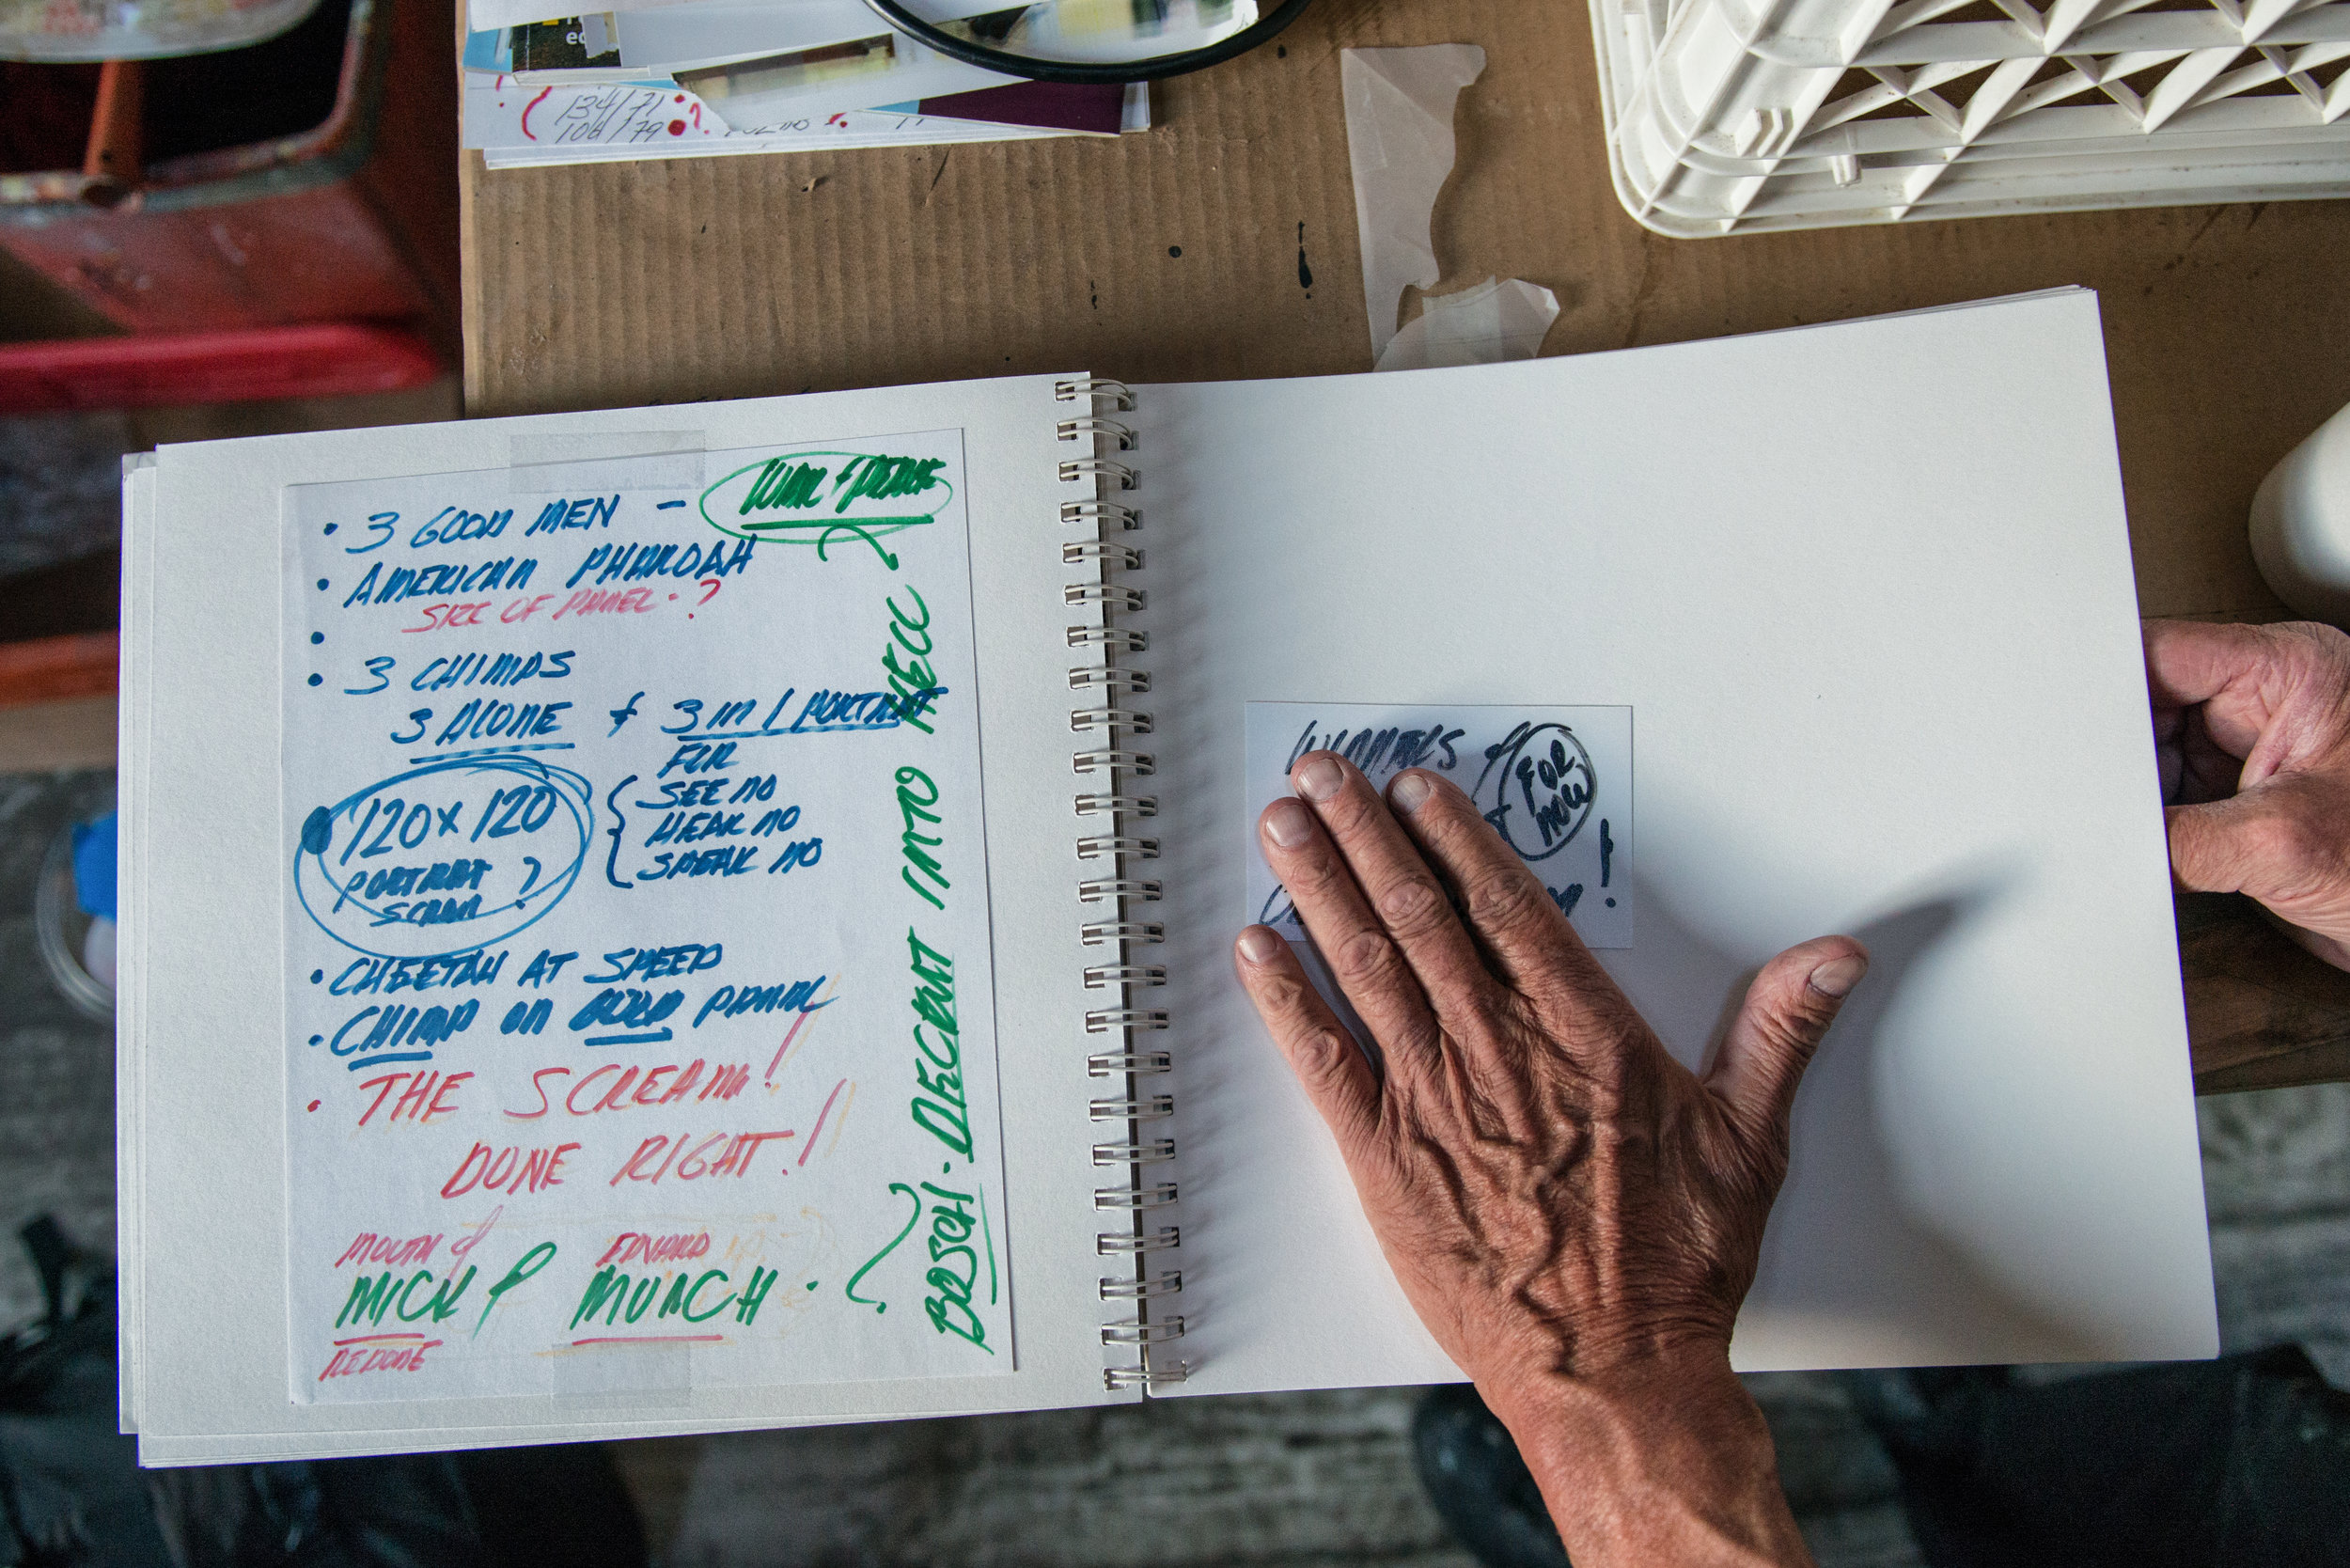 ed
134/71
106/79 ?
• 3 GOOD MEN - WAR & PEACE
• AMERICAN PHAROAH
SIZE OF PANEL - ?
•
• 3 CHIMPS
3 ALONE & 3 IN 1 PORTRAIT
FOR
SEE NO
HEAR NO
SPEAK NO
120 x 120
PORTRAIT ?
• CHEETAH AT SPEED
• CHIMP ON GOLD PANEL
• THE SCREAM!
DONE RIGHT!
MOUTH of EDVARD
MICK & MUNCH •
REDONE
BOSCH • DECENT INTO HELL
FOR
NOW
!